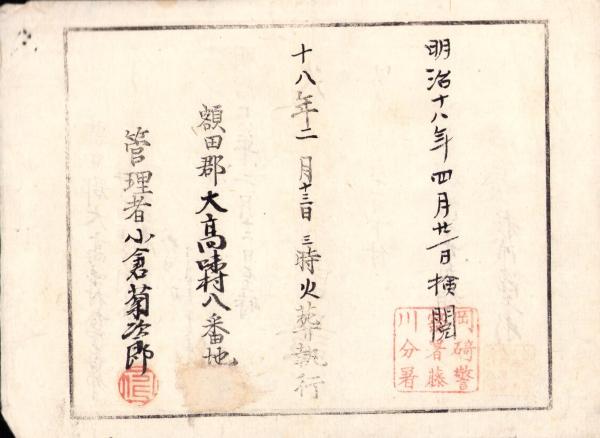 明治十八年四月廿一日検閲
岡﨑警
察署藤
川分署
十八年二月十三日三時火葬執行
額田郡大高味村八番地
管理者小倉菊次郎